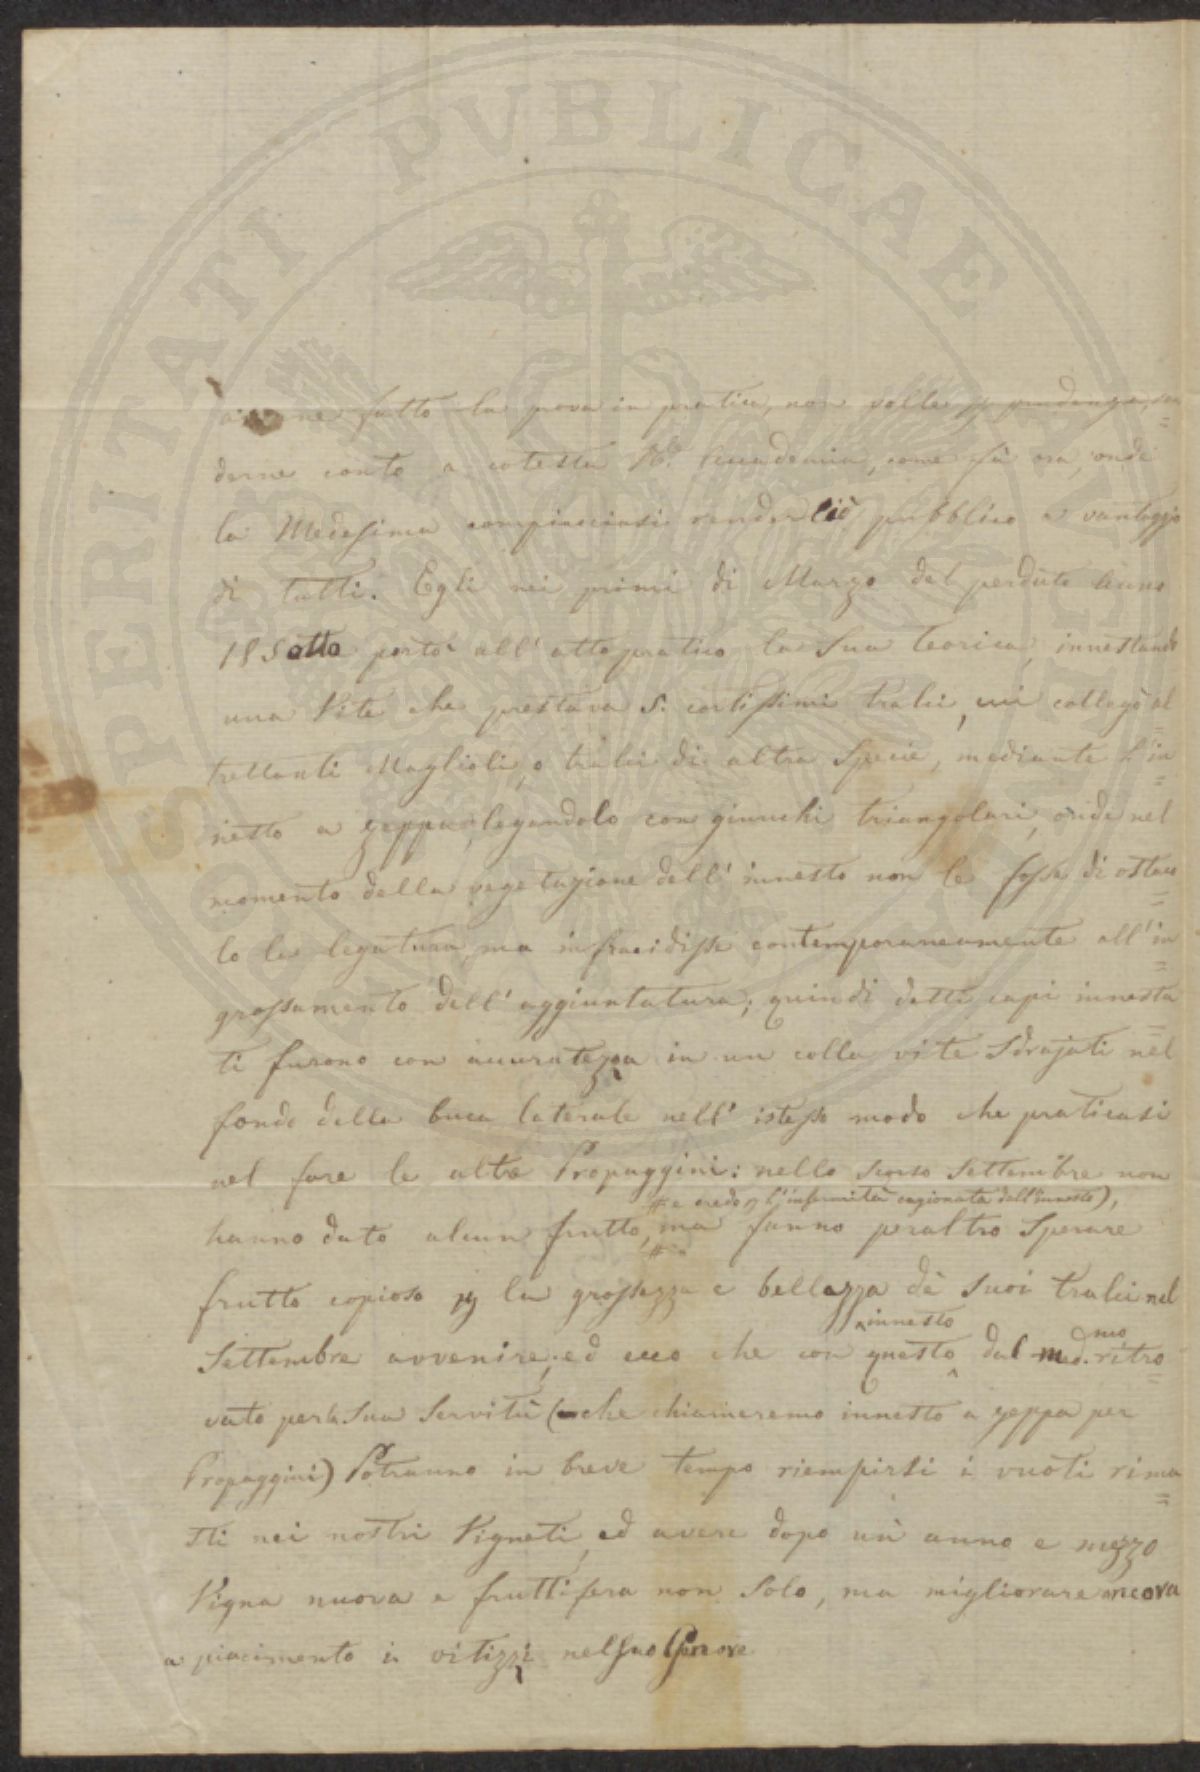 PROSPERITATI PUBLICAE AUGENDAE
averne fatto la prova in pratica, non volle
derne conto a cotesta Accademia, come fà ora, onde
la Medesima compiacciasi render ciò pubblico a vantaggio
di tutti. Egli nei primi di Marzo del perduto Anno
185otto portò all' atto pratico la Sua teorica, innestando
una Vite che prestava cortissimi tralci, cui collegò al=
trettanti Maglioli, o tralci di altra Specie, mediante l' in=
nesto a zeppa, legandolo con giunchi triangolari, onde nel
momento della vegetazione dell' innesto non le fosse di ostaco=
lo la legatura, ma infracidisse contemporaneamente all' in=
grossamento dell' aggiuntatura; quindi detti capi innesta=
ti furono con accuratezza in un colla vite Sdrajati nel
fondo della buca laterale nell' istesso modo che praticasi
nel fare le altre Propaggini: nello scorso Settembre non
# e credo p l' infermità cagionata dall' innesto),
hanno dato alcun frutto, # ma fanno peraltro Sperare
frutto copioso p la grossezza e bellezza dè Suoi tralci nel
Settembre avvenire; ed ecco che con questo ^innesto dal med.mo ritro=
vato per la Sua Servitù (che chiameremo innesto a zeppa per
Propaggini) Potranno in breve tempo riempirsi i vuoti rima=
sti nei nostri Vigneti, ed avere dopo un anno e mezzo
Vigna nuova e fruttifera non Solo, ma migliorare ancora
a piacimento i vitizzi nel suo